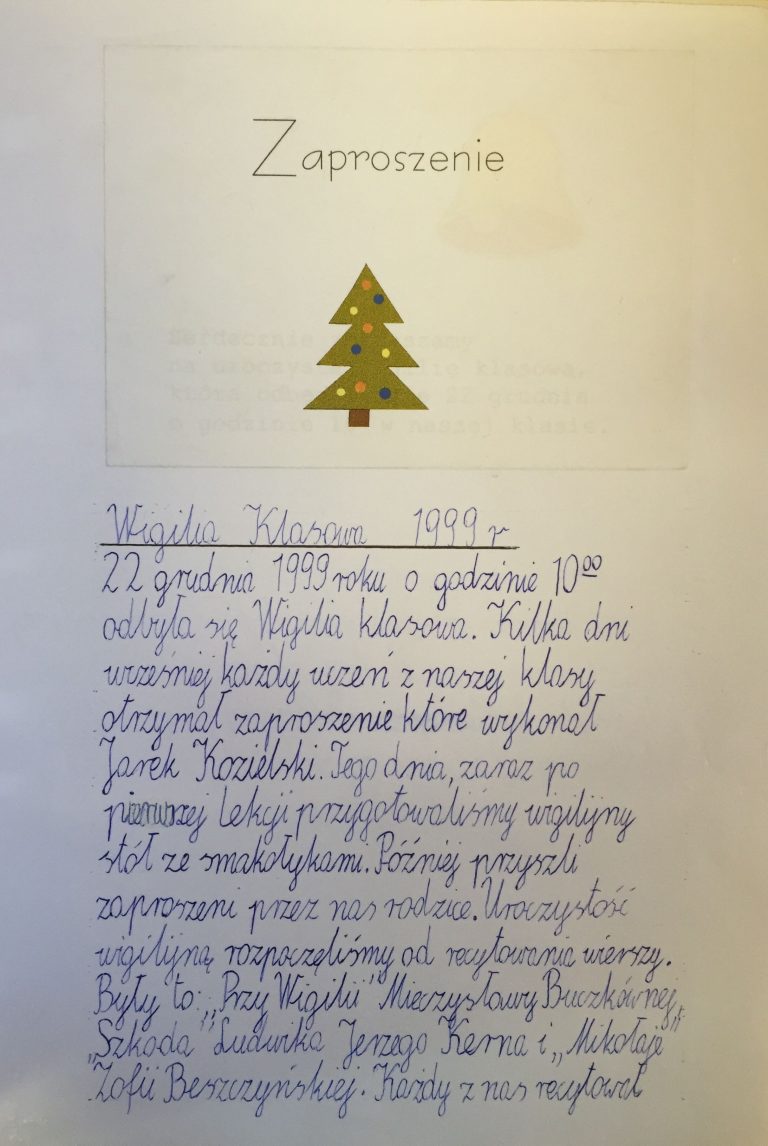 Zaproszenie
Wigilia Klasowa 1999 r
22 grudnia 1999 roku o godzinie 10⁰⁰
odbyła się Wigilia klasowa. Kilka dni
wrześniej każdy uczeń z naszej klasy
otrzymał zaproszenie które wykonał
Jarek Kozielski. Tego dnia, zaraz po
pierwszej lekcji przygotowaliśmy wigilijny
stół ze smakołykami. Później przyszli
zaproszeni przez nas rodzice. Uroczystość
wigilijną rozpoczęliśmy od recytowania wierszy.
Były to: „Przy Wigilii” Mieczysławy Buczkównej,
„Szkoda” Ludwika Jerzego Kerna i „Mikołaje”
Zofii Beszczyńskiej. Każdy z nas recytował